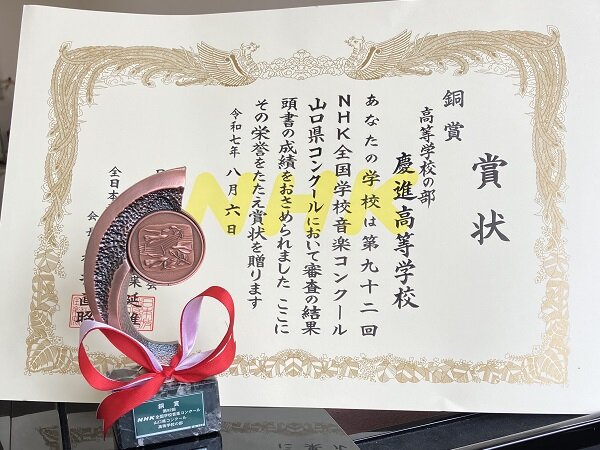 賞状
銅賞
高等学校の部
慶進高等学校
あなたの学校は第九十二回
NHK全国学校音楽コンクール
山口県コンクールにおいて審査の結果
頭書の成績をおさめられました ここに
その栄誉をたたえ賞状を贈ります
令和七年八月六日
NHK
全日本
銅賞
第92回
NHK全国学校音楽コンクール
山口県コンクール
高等学校の部